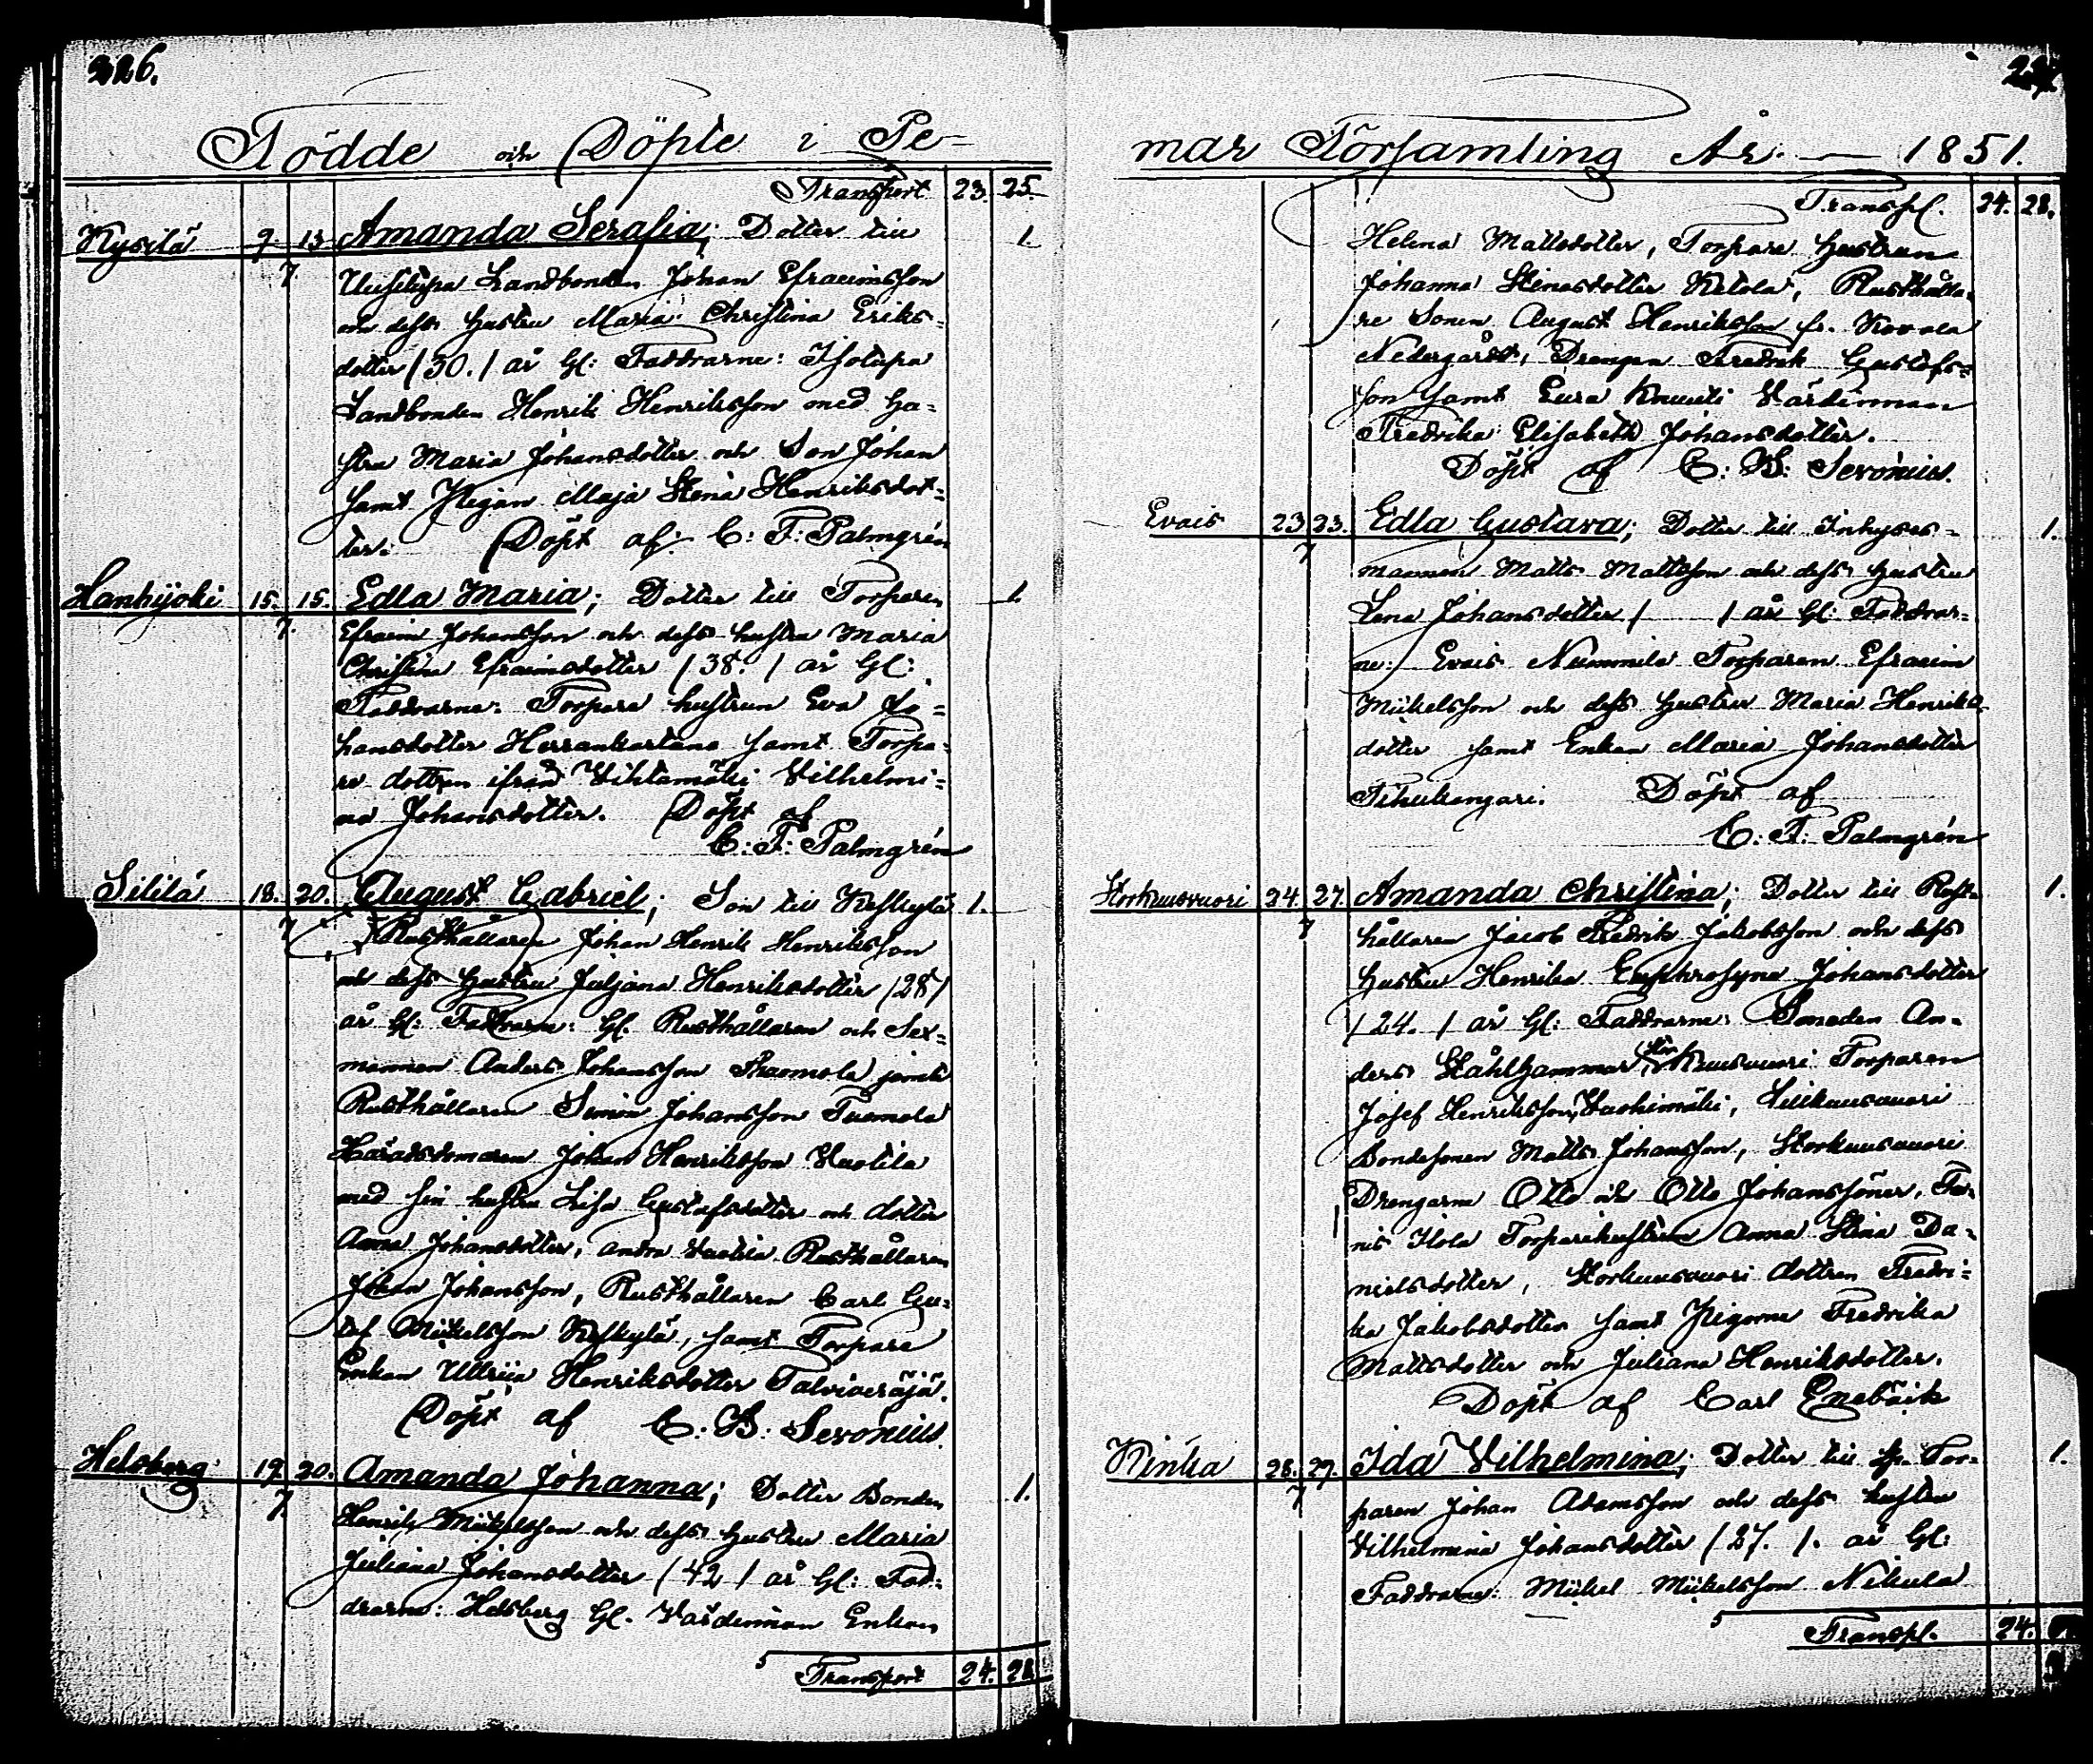 226.
Födde och Döpte i Pe-
Transport 23. 25.
Kysilä 9 13 Amanda Serafia; Dotter till 1.
7. Uusitupa Landbonden Johan Efraimsson
och dess hustru Maria Christina Eriks-
dotter /30./ år Gl: Faddrarne: Isotupa
Landbonden Henrik Henriksson med hu-
stru Maria Johansdotter och Son Johan
samt Pigan Maja Stena Henriksdot-
ter. Döpt af: C: F: Palmgrén
Hanhijoki 15. 15. Edla Maria; Dotter till Torparen 1.
7. Efraim Johansson och dess hustru Maria
Christina Efraimsdotter /38./ år Gl:
Faddrarne: Torpare hustrun Eva Jo-
hansdotter Herrankartano samt Torpa-
re dottren ifrån Vihtamäki Vilhelmi-
na Johansdotter. Döpt af
C: F: Palmgrén
Sililä 18. 20. August Gabriel; Son till Keskylä 1.
7 Rusthållaren Johan Henrik Henriksson
och dess hustru Juljana Henriksdotter /28/
år Gl: Faddrarne: Gl. Rusthållaren och Sex-
mannen Anders Johansson jemte
Rusthållaren Simon Johansson Tuomola
Häradsdomaren Johan Henriksson Uotila
med sin hustru Lisa Gustafsdotter och dotter
Anna Johansdotter, andra Uotila Rusthållaren
Johan Johansson, Rusthållaren Carl Gu-
staf Mickelsson Keskylä, samt Torpare
Enkan Ullrica Henriksdotter
Döpt af C. B: Seronius.
Helsberg 19 20. Amanda Johanna; Dotter Bonden 1.
7. Henrik Mickelsson och dess hustru Maria
Juliana Johansdotter /42/ år Gl: Fad-
drarne: Helsberg Gl. Värdinnan Enkan
5 Transport 24. 28
227.
mar Församling År. — 1851.
Transpt. 24. 28.
Helena Mattsdotter, Torpare hustrun
Johanna Stinasdotter Ketola, Rusthålla-
re Sonen August Henriksson fr. Kovala
Nedergård, Drengen Fredrik Gustafs-
son samt Eura Knuuti Värdinnan
Fredrika Elisabeth Johansdotter.
Döpt af C: B: Seronius.
Evais 23 23. Edla Gustava; Dotter till Inhyses- 1.
7 mannen Matts Mattsson och dess hustru
Lena Johansdotter / / år Gl: Faddrar-
ne: Evais Nummila Torparen Efraim
Mickelsson och dess hustru Maria Henriks-
dotter samt Enkan Maria Johansdotter
Döpt af
C. F: Palmgrén
Storkuusvuori 24. 27. Amanda Christina; Dotter till Rust- 1.
7 hållaren Jacob Fredrik Jakobsson och dess
hustru Henrika Euphrosyne Johansdotter
/24./ år Gl: Faddrarne: Smeden An-
ders Stålhammar, Stor Kuusvuori Torparen
Josef Henriksson, Vuohimäki, Lillkuusvuori
Bondesonen Matts Johansson, Storkuusvuori
Drengarne Otto och Otto Johanssöner, Tu-
nis Torparehustrun Anna Stina Da-
nielsdotter, Storkuusvuori dottren Fredri-
ka Jakobsdotter samt Pigorne Fredrika
Mattsdotter och Juliana Henriksdotter.
Döpt af Carl Enebäck
Vinika 26. 27. Ida Vilhelmina; Dotter till fr. Tor- 1.
7 paren Johan Adamsson och dess hustru
Vilhelmina Johansdotter /27./. år Gl:
Faddrarne: Mickel Mickelsson Nikula
5 Transpt. 24.